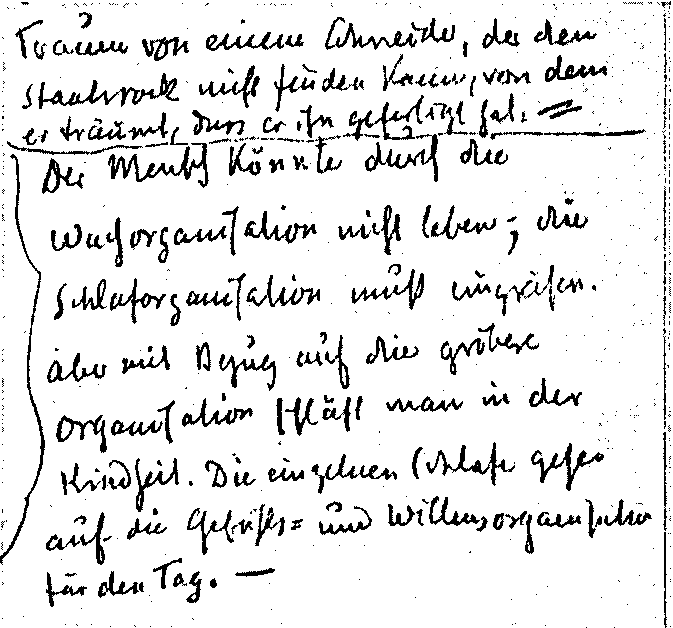 Traum von einem Schneider, der den
Staatsrock nicht finden kann, von dem
er träumt, dass er ihn gefertigt hat. =
Der Mensch könnte durch die
Wachorganisation nicht leben -; die
Schlaforganisation muß eingreifen.
Aber mit Bezug auf die gröbere
Organisation schläft man in der
Kindheit. Die einzelnen Schlafe gehen
auf die Gefühls= und Willensorganisation
für den Tag. —